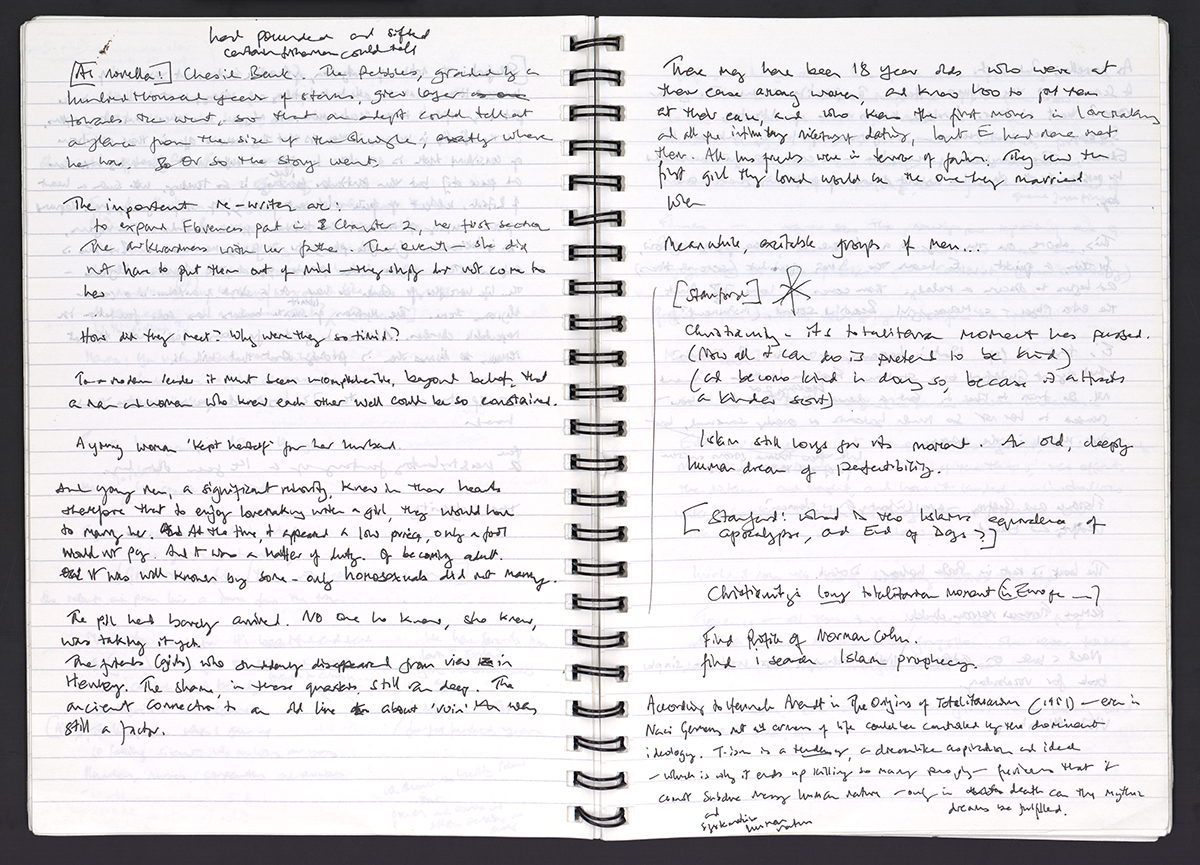 had pounded and sifted
certain fisherman could tell
[As novella!] Chesil Bank. The Pebbles, graded by a
hundred thousand years of storms, grew larger
towards the west, so that an adept could tell at
a glance from the size of the shingle, exactly where
he was. Or so the story went.
The important re-writes are:
to expand Florence's part in Chapter 2, her first section
The awkwardness with her father. The events — she did
not have to put them out of mind — they simply did not come to
her
How did they meet? Why were they so timid?
To a modern reader it must seem incomprehensible, beyond belief, that
a man and woman who knew each other well could be so constrained.
A young woman 'kept herself' for her husband.
And young men, a significant minority, knew in their hearts
therefore that to enjoy lovemaking with a girl, they would have
to marry her. At the time, it appeared a low price, only a fool
would not pay. And it was a matter of duty. Of becoming adult.
it was well known by some - only homosexuals did not marry.
The pill had barely arrived. No one he knew, she knew,
was taking it yet.
The friends (girls) who suddenly disappeared from view in
Henley. The shame, in those quarters, still ran deep. The
ancient connection to an old line about 'ruin' was
still a factor.
There may have been 18 year olds who were at
their ease among women, and knew how to put them
at their ease, and who knew the first moves in lovemaking
and all the intimidating of dating, but E had none met
them. All his friends were in terror of failure. They knew the
first girl they loved would be the one they married
when
Meanwhile, excitable groups of men...
[Stanford]
Christianity - its totalitarian moment has passed.
(Now all it can do is pretend to be kind)
(and become kind in doing so, because it attracts
a kinder sort)
Islam still longs for its moment. An old, deeply
human dream of perfectibility.
[Stanford: what is the Islamic equivalence of
apocalypse, and End of Days?]
Christianity's long totalitarian moment (in Europe —)
Find Profile of Norman Cohn.
find / search Islam prophecy.
According to Hannah Arendt in The Origins of Totalitarianism (1951) — even in
Nazi Germany not all corners of life could be controlled by the dominant
ideology. T-ism is a tendency, a dreamlike aspiration and ideal
- which is why it ends up killing so many people - furious that it
cannot subdue messy human nature - only in death can the mythic
dreams be fulfilled.
and
human nature